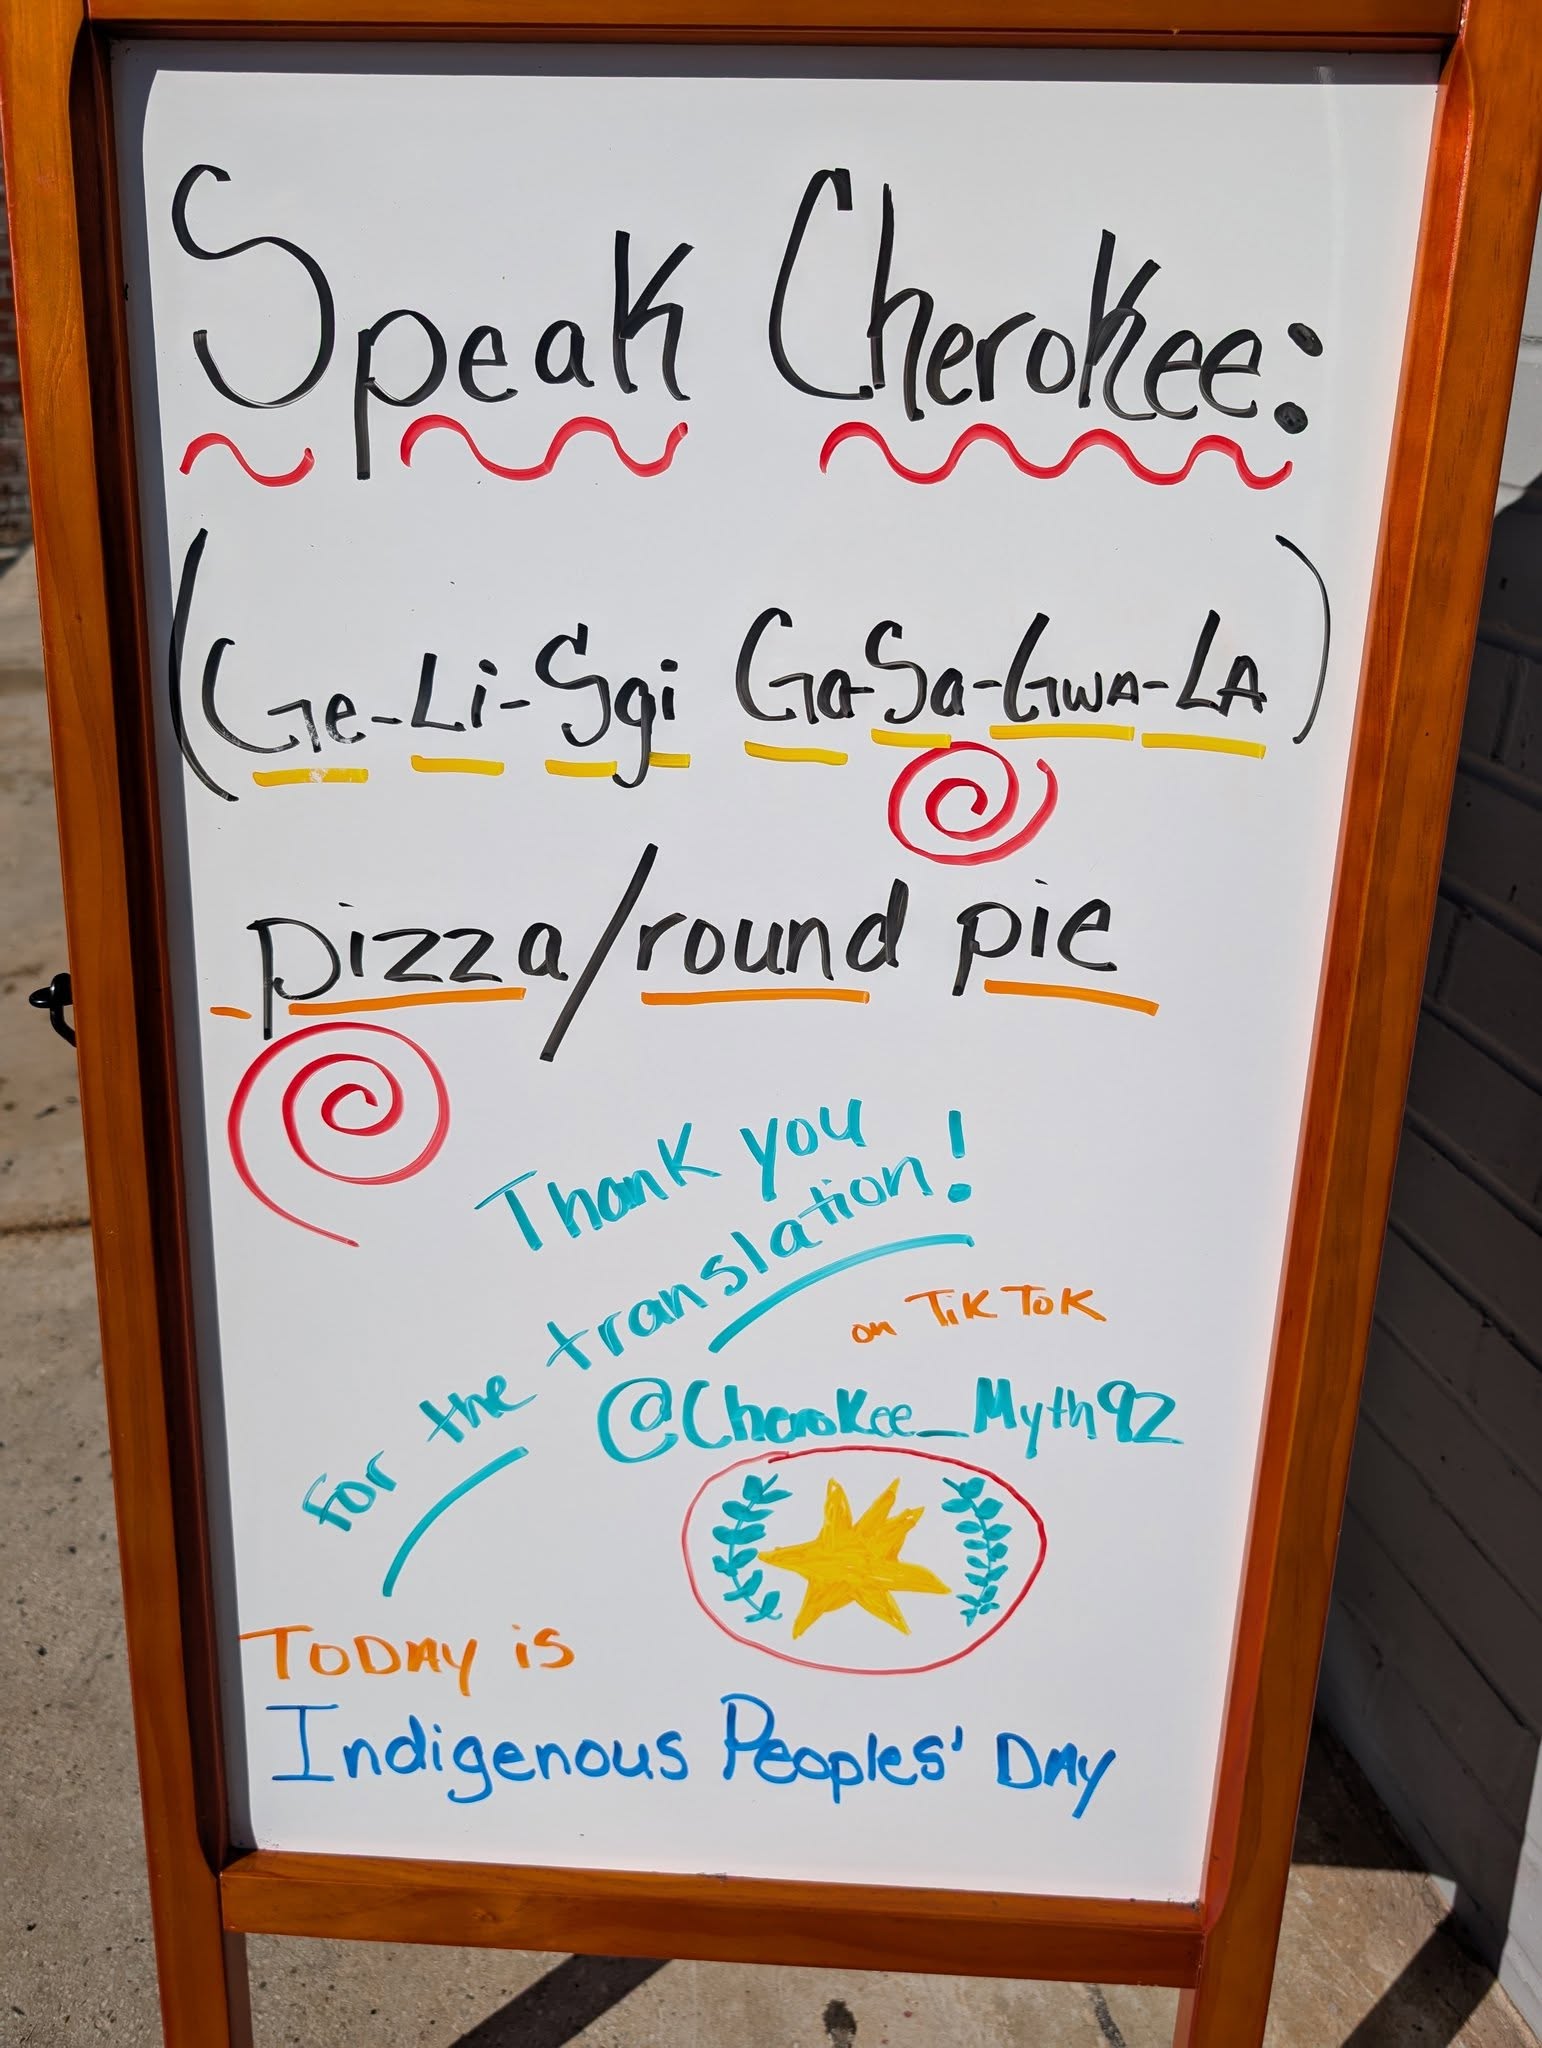 Speak Cherokee:
(Ge-Li-Sgi Ga-Sa-Gwa-LA)
pizza/round pie
Thank you
for the translation!
on TikTok
@Cherokee_Myth92
TODAY is
Indigenous Peoples' DAY